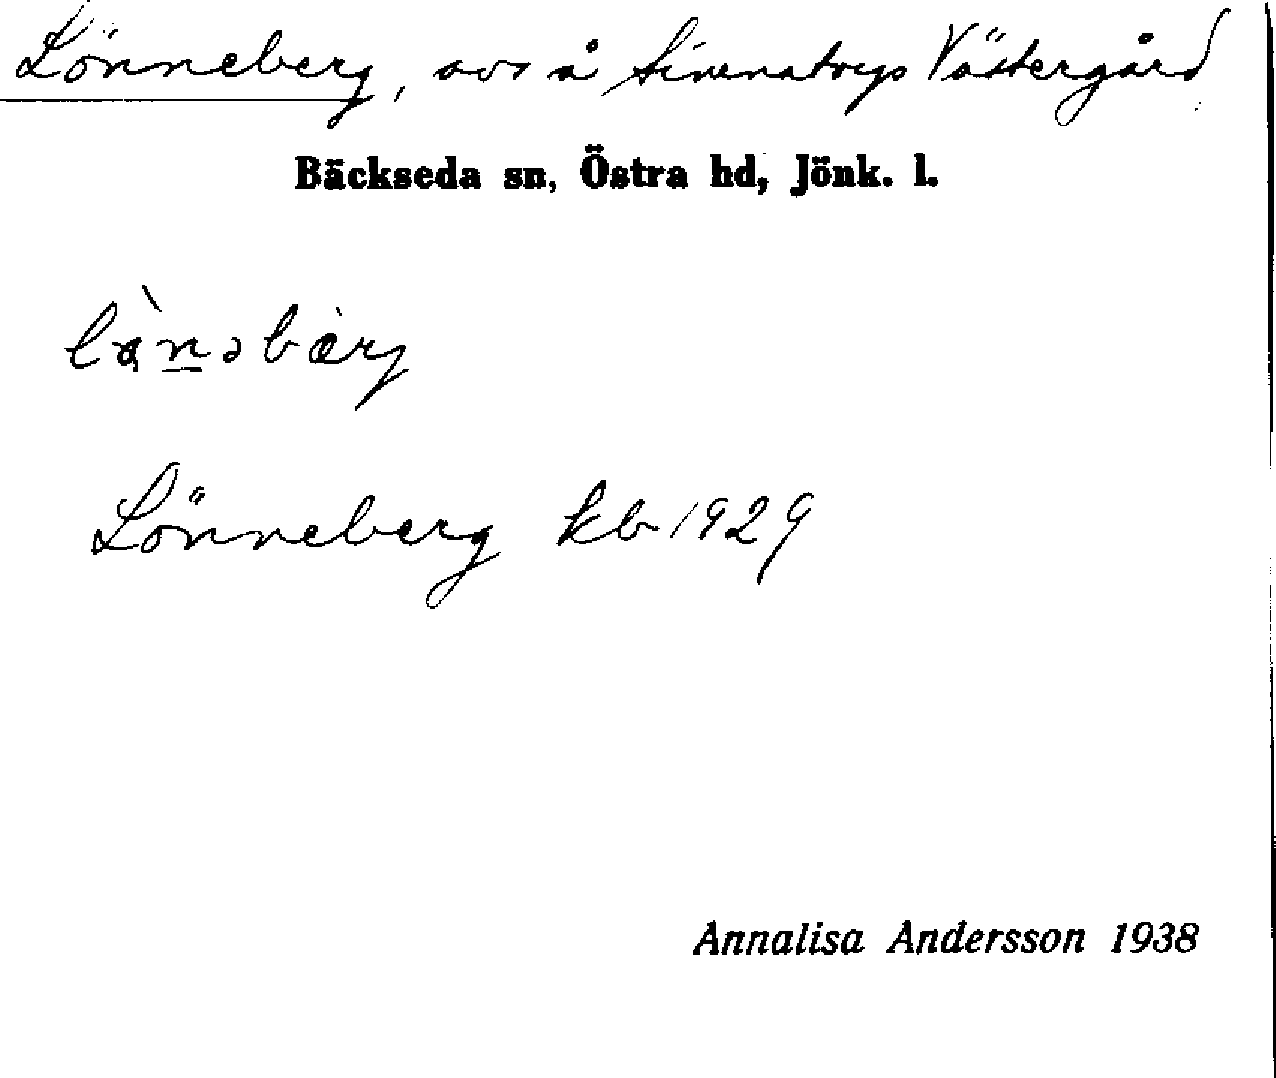 Lönneberg, avs å Simnatorps Västergård
Bäckseda sn, Östra hd, Jönk. l.
Lönneberg kb 1929
Annalisa Andersson 1938